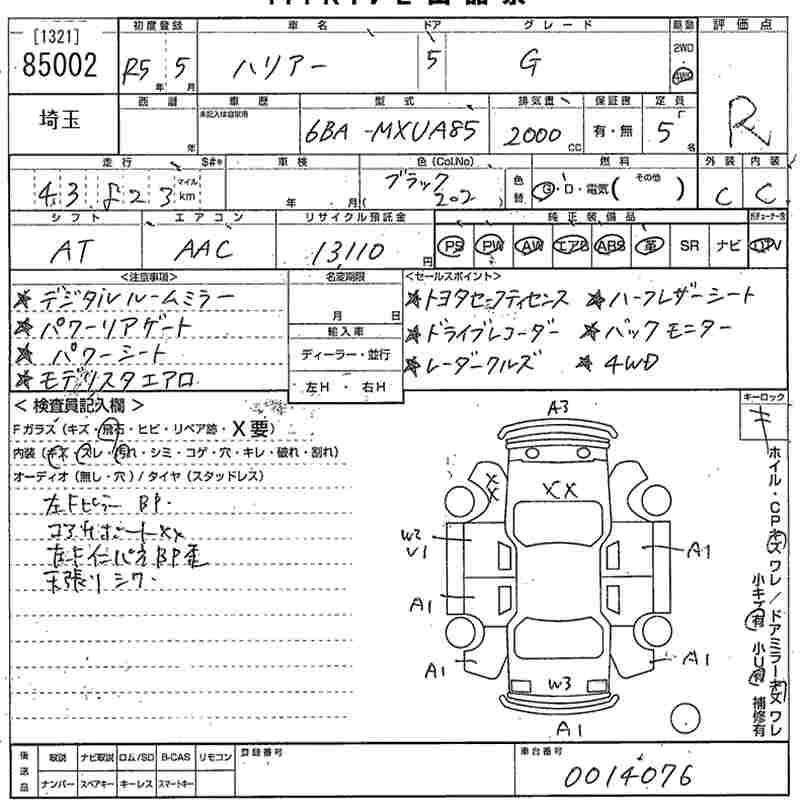 [1321]
85002
埼玉
初度登録 車名 ドア グレード 駆動 評価点
R5年 5月 ハリアー 5 G 2WD 4WD R
西暦 車歴 型式 排気量 保証書 定員
年 未記入は自家用 6BA-MXUA85 2000cc 有・無 5名
走行 車検 色(Col,No) 燃料 外装 内装
43,823 マイル km 年 月 ブラック 202 色替 G・D・電気( その他 ) C C
シフト エアコン リサイクル預託金 純正装備品
AT AAC 13,110円 PS PW AW エアB ABS 革 SR ナビ TV
<注意事項> 名変期限 <セールスポイント>
★デジタルルームミラー 月 日 ★トヨタセーフティセンス ★ハーフレザーシート
★パワーリアゲート 輸入車 ★ドライブレコーダー ★バックモニター
★パワーシート ディーラー・並行 ★レーダークルーズ ★4WD
★モデリスタエアロ 左H・右H
<検査員記入欄>
Fガラス(キズ・飛石・ヒビ・リペア跡・X要)
内装(キズ・スレ・汚れ・シミ・コゲ・穴・キレ・破れ・割れ)
オーディオ(無し・穴)/タイヤ(スタッドレス)
左Fピラー BP.
コアサポートXX
左Fインパネ BP歪
天張りシワ.
キーロック
キ
ホイル・CPキズ ワレ/ドアミラーキズ ワレ
小キズ有 小U有 補修有
A3
XX
XX
W2
V1
A1
A1
A1
A1
W3
A1
後送品 取説 ナビ取説 ロム/SD B-CAS リモコン 登録番号 車台番号
ナンバー スペアキー キーレス スマートキー 0014076